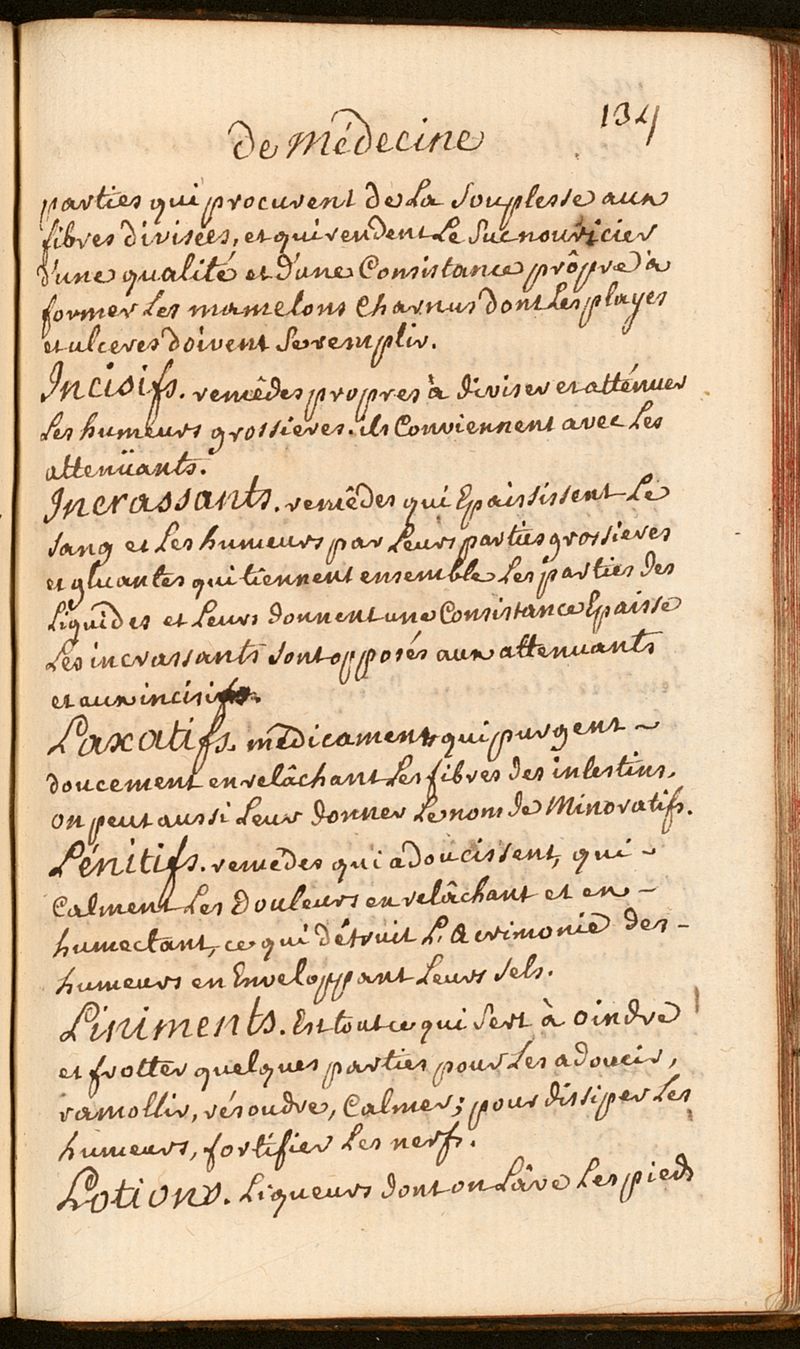 134
de médecine
parties qui procurent de La Souplesse aux
fibres divisées, et qui rendent Le Suc nouricier
d'une qualité et d'une Consistance prôpre à
former Les mamelons Charnus dont Les playes
et ulceres doivent Se remplir.
Incisifs. remêdes propres à diviser et atténuer
Les humeurs grossieres. ils Conviennent avec Les
attenüants.
Incrassants. remêdes qui Epaississent Le
sang et Les humeurs par Leurs parties grossieres
et gluantes qui tiennent ensemble Les parties des
Liquides et Leurs donnent une Consistance Epaisse
Les incrassants sont opposés aux attenuants
et aux incisifs.
Laxatifs. médicaments qui purgent ~
doucement en relâchant Les fibres des intestins.
on peut aussi Leur donner Le nom de Minoratifs.
Lénitifs. remedes qui adoucissent, qui ~
Calment Les Douleurs en relâchant et en ~
humectant, ce qui détruit L'Acrimonie des -
humeurs en Enveloppant Leurs sels.
Liniments. Est tout ce qui Sert à oindre
et frotter quelques parties pour Les adoucir,
ramollir, résoudre, Calmer; pour dissiper Les
humeurs, fortifier Les nerfs.
Lotions. Liqueurs dont on Lâve Les pieds